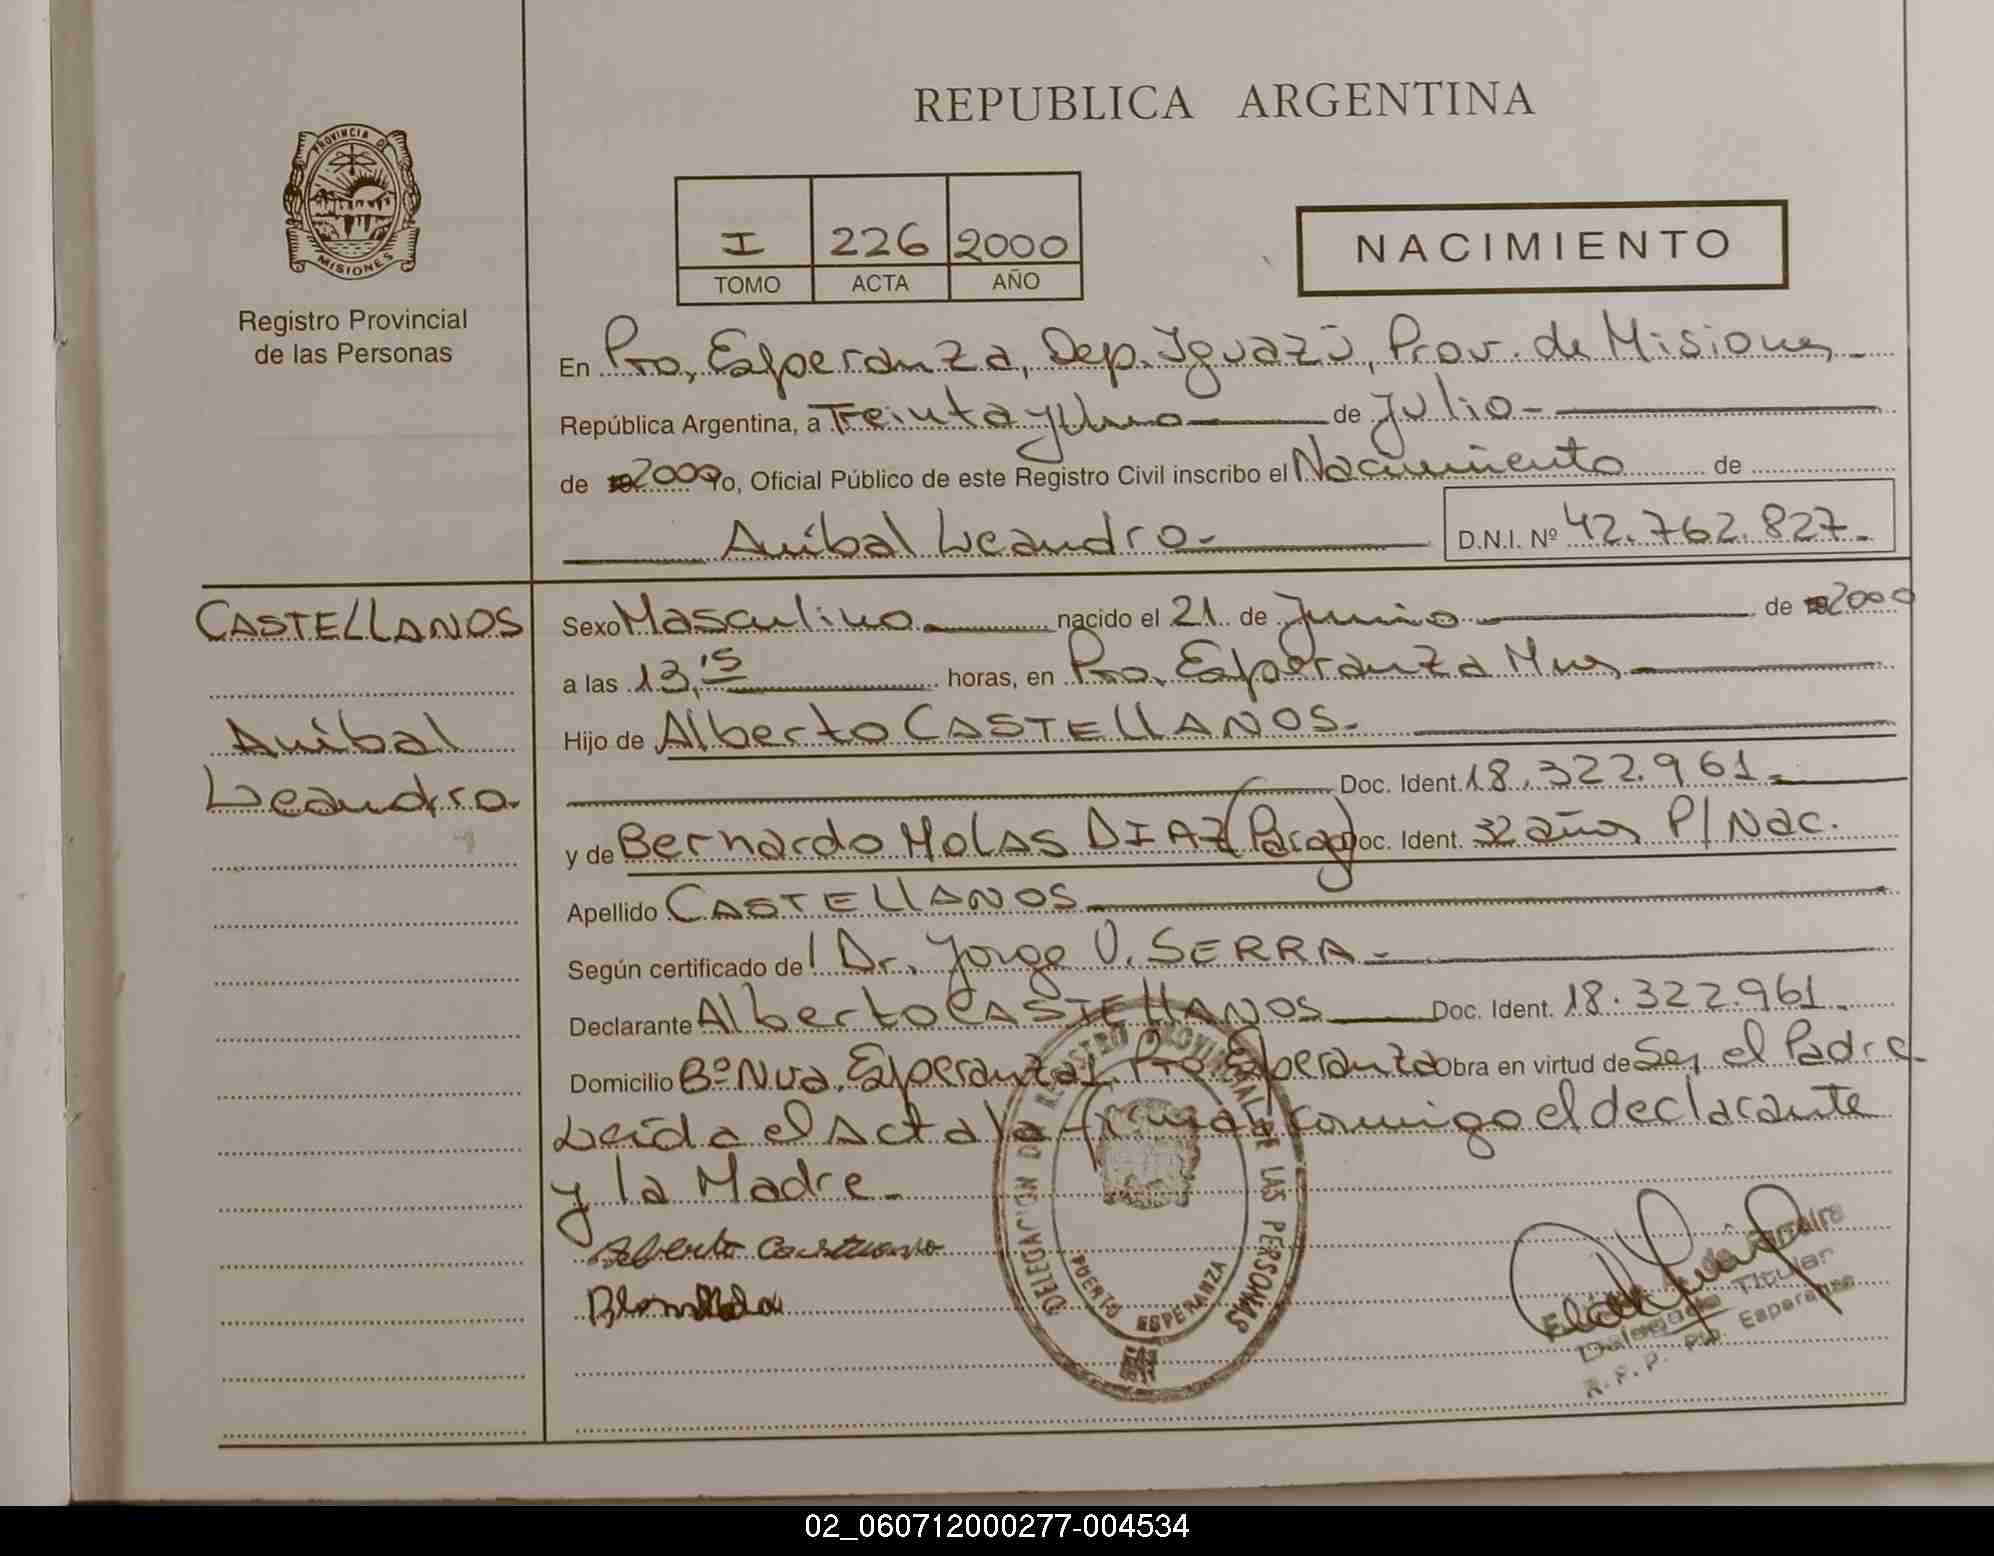 REPUBLICA ARGENTINA
PROVINCIA DE
MISIONES
Registro Provincial
de las Personas
I 226 2000
TOMO ACTA AÑO
NACIMIENTO
En Pto, Esperanza, Dep. Iguazú, Prov. de Misiones
República Argentina, a Treinta y Uno de Julio
de 2000 Yo, Oficial Público de este Registro Civil inscribo el Nacimiento de
Aníbal Leandro
D.N.I. Nº 42.762.827
CASTELLANOS
Aníbal
Leandro
Sexo Masculino nacido el 21 de Junio de 2000
a las 13,15 horas, en Pto, Esperanza Mnes
Hijo de Alberto CASTELLANOS
Doc. Ident. 18.322.961
y de Bernardo MOLAS DIAZ (Parag) Doc. Ident. 32 años P/ Nac.
Apellido CASTELLANOS
Según certificado del Dr. Jorge V. SERRA
Declarante Alberto CASTELLANOS Doc. Ident. 18.322.961
Domicilio Bº Nva. Esperanza, Pto Esperanza Obra en virtud de Ser el Padre
Leída el Acta la firman conmigo el declarante
y la Madre
DELEGACION DEL REGISTRO PROVINCIAL DE LAS PERSONAS
PUERTO ESPERANZA
Titular
R.P.P. Pto. Esperanza
02_060712000277-004534